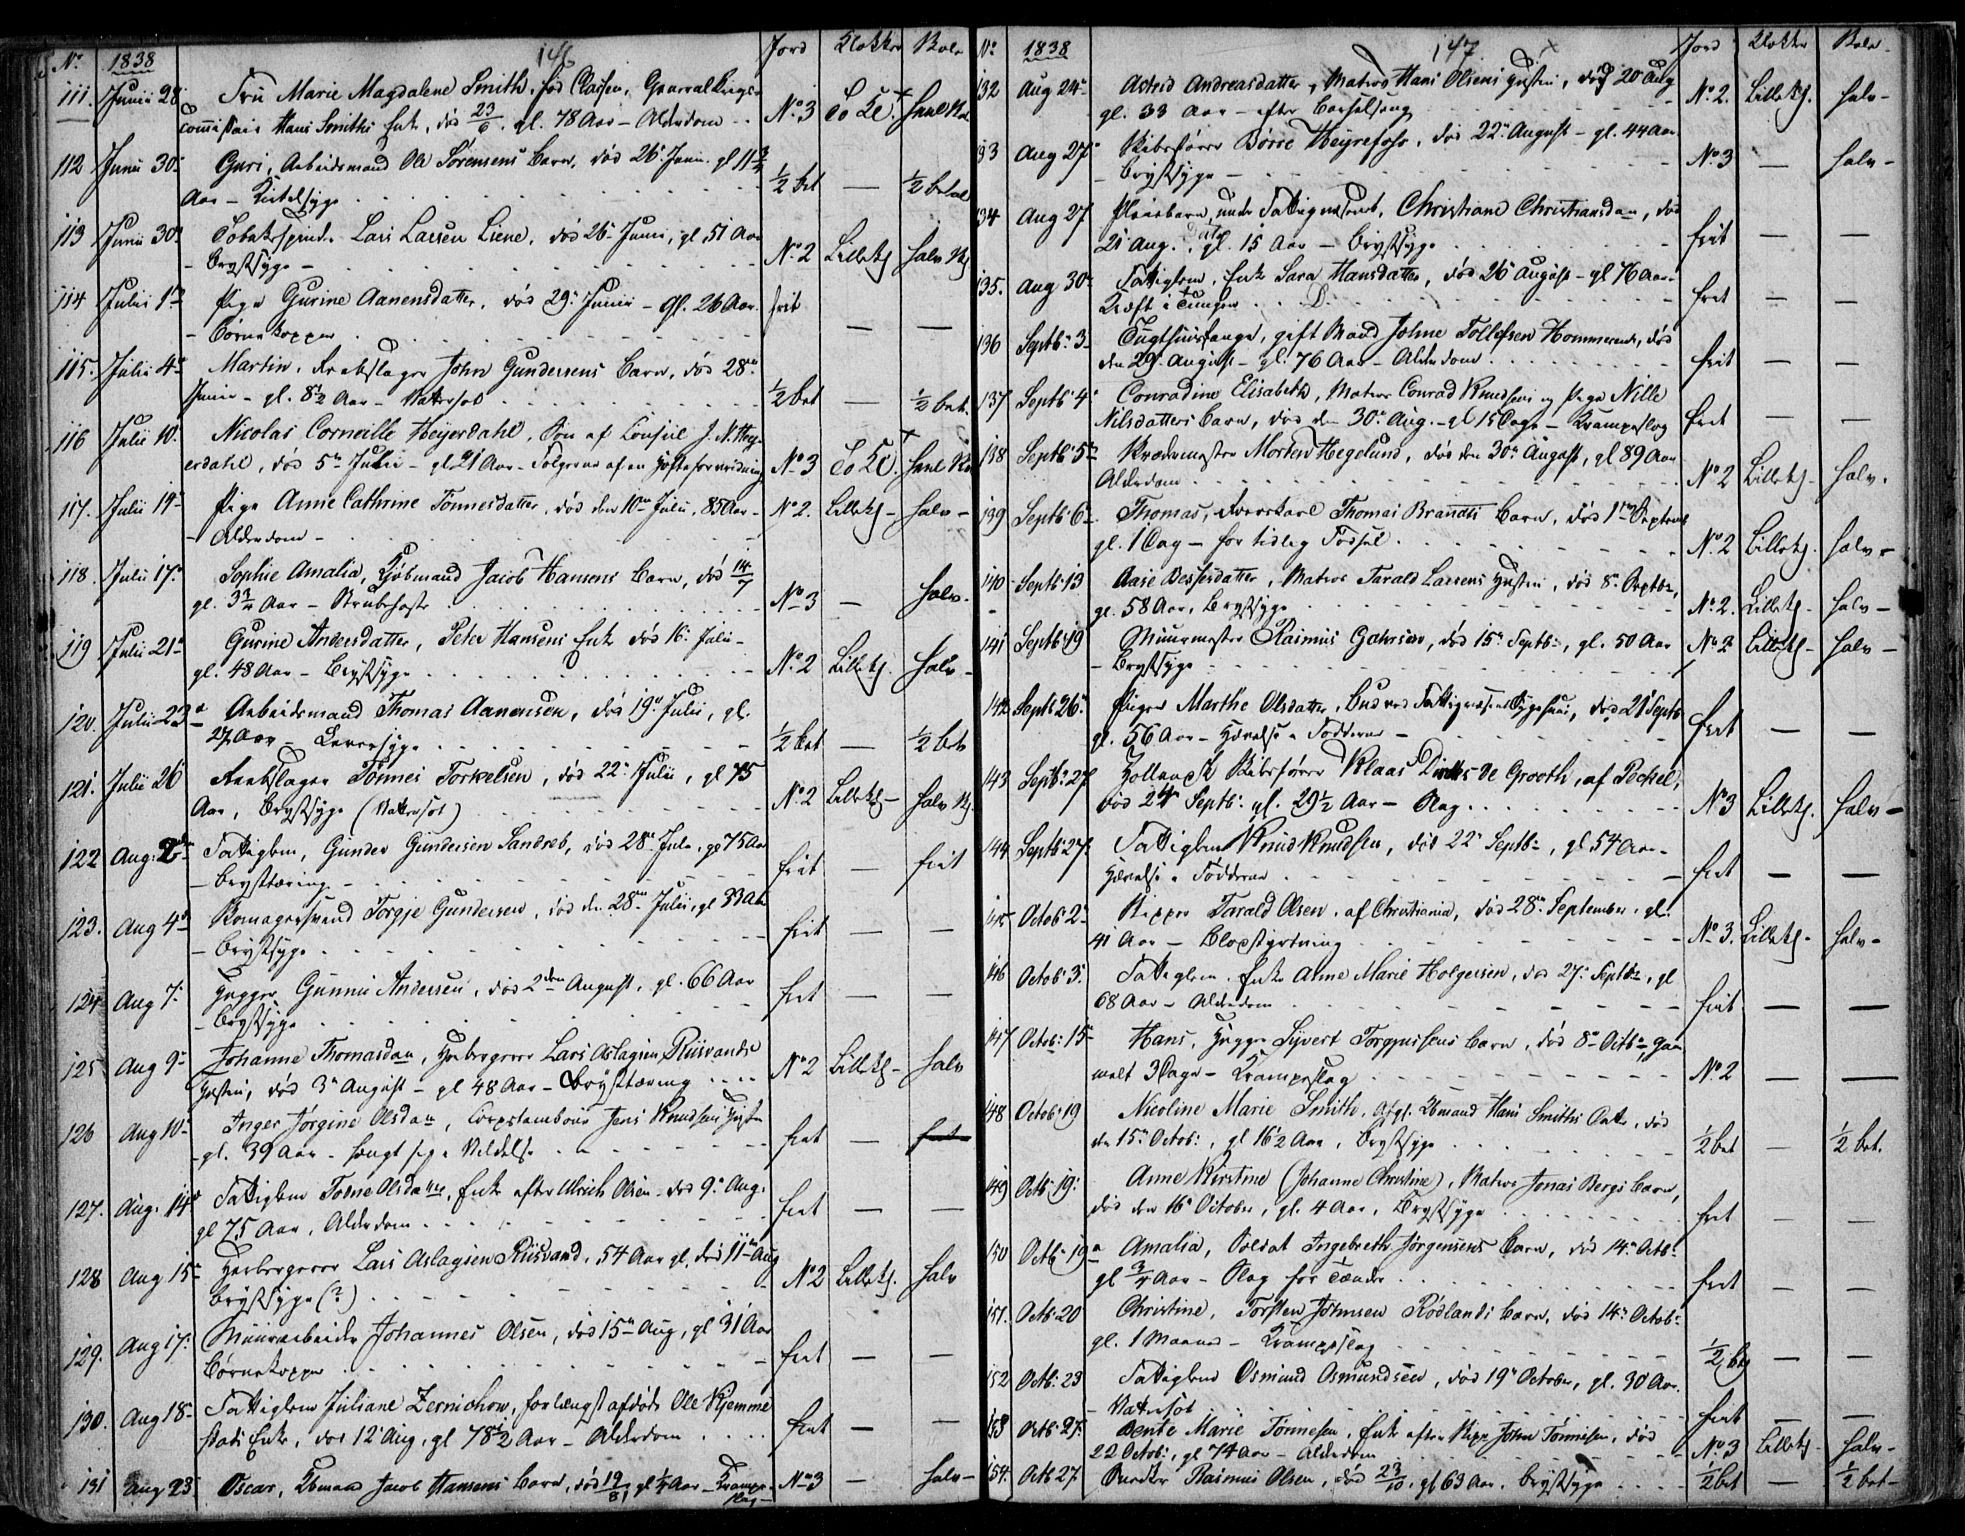 146
No 1838 Jord Klokker Baare
111. Junii 28 Fru Marie Magdalene Smith, fød Clasen, General Krigs-
commissair Hans Smiths Enke, død 23/6, gl. 78 Aar – Alderdom No 3 To Kl. heel
112 Junii 30 Guri, Arbeidsmand Ole Sørensens Barn, død 26 Junii gl 11 3/4
Aar – Kirtelsyge ½ bet — ½ betal
113 Junii 30 Tobakspind. Lars Larsen Liene, død 26 Junii, gl 51 Aar
– Brystsyge – No 2 Lillekl halv Kl
114 Julii 1 Pige Gurine Aanensdatter, død 29 Junii – gl. 26 Aar.
– Børnekopper frit — —
115. Julii 4 Martin, Rebslager John Gundersens Barn, død 28
Junii – gl. 8½ Aar – Vattersot ½ bet — ½ bet.
116 Julii 10 Nicolai Corneille Heyerdahl, Søn af Consul J. N. Hey-
erdahl, død 5 Julii – gl 21 Aar – Følgerne af en Hofteforvridning No 3 To Kl. heel
117. Julii 14 Pige Anne Cathrine Tønnesdatter, død den 10 Julii, 85 Aar –
– Alderdom – No 2. Lillekl – halv –
118. Julii 17 Sophie Amalia, Kjøbmand Jacob Hansens Barn, død 14/7
gl. 3 3/4 Aar – Strubehoste No 3 — halv –
119 Julii 21 Gurine Andersdatter, Peter Hansens Enke død 16 Julii –
gl. 48 Aar – Brystsyge No 2 Lillekl. halv –
120. Julii 23 Arbeidsmand Thomas Aanensen, død 19 Julii, gl.
27 Aar – Leversyge ½ bet — ½ bet
121. Julii 26 Rebslager Tønnes Torkelsen, død 22 Julii, gl 75
Aar, Brystsyge (Vattersot) No 2 Lillekl – halv Kl.
122 Aug: 2 Fattiglem, Gunder Gundersen Sandreb, død 28 Julii, gl 75 Aar
– Brysttæring – frit — frit
123. Aug 4 Skomagersvend Torgje Gundersen, død den 28 Julii, gl 33 Aar
– Brystsyge frit — —
124 Aug 7 Hugger Gunnu Andersen, død 2den August, gl. 66 Aar
– Brystsyge frit — —
125 Aug 9 Johanne Thomasdatter, Herbergerer Lars Aslagsen Riisvands
Hustru, død 3 August – gl 48 Aar – Brysttæring No 2 Lillekl – halv
126 Aug 10 Inger Jørgine Olsdatter, Corpstambour Jens Knudsens Hustru
– gl. 39 Aar – frit — frit
127. Aug. 14 Fattiglem Tolne Olsdatter, Enke efter Ulrich Olsen – død 9 Aug.
gl 75 Aar, Alderdom frit — —
128 Aug 15 Herbergerer Lars Aslagsen Riisvand, 54 Aar gl, død 11 Aug
Brystsyge (?) No 2 Lillekl. halv
129. Aug 17 Muurarbeider Johannes Olsen, død 15 Aug, gl 31 Aar
Børnekopper frit — —
130. Aug 18 Fattiglem Juliane Zernichow, forlængst afdøde Ole Kjemme
stads Enke, død 12 Aug, gl 78½ Aar – Alderdom frit — —
131 Aug 23 Oscar, Kbmand Jacob Hansens Barn, død 19/8, gl ¼ Aar – Krampe-
slag – No 3 — halv –
147
No 1838 Jord Klokke Baare
132 Aug 24 Astrid Andreasdatter, Matros Hans Olsens Hustru, død 20 Aug
gl. 33 Aar – efter Barselseng No 2. Lillekl. halv –
133 Aug 27 Skibsfører Børre Heyrefoss, død 22 August – gl. 44 Aar
– Brystsyge – No 3 — halv –
134 Aug 27 Pleiebarn under Fattigvæsenet, Christiane Christiansdatter, død
21 Aug. gl. 15 Aar – Brystsyge frit — —
135. Aug 30 Fattiglem, Enke Sara Hansdatter, død 26 August – gl 76 Aar –
Kræft i Tungen frit — —
136 Septb: 3 Tugthuusfange, gift Mand Johne Tollefsen Hommeren, død
den 29 August – gl. 76 Aar – Alderdom frit — —
137 Septb: 4 Conradine Elisabeth, Matros Conrad Knudsens og Pige Nille
Nilsdatters Barn, død den 30 Aug. – gl 15 Dage – Krampeslag frit — —
138 Septb: 5 Skrædermester Morten Hegelund, død den 30 August, gl 89 Aar
Alderdom No 2 Lillekl – halv.
139 Septb: 6 Thomas, Thomas Brandts Barn, død 1 Septemb
gl. 1 Dag – for tidlig Fødsel No 2 Lillekl – halv –
140 Septb: 13 Aase Bessesdatter, Matros Tarald Larsens Hustru, død 8 Septbr,
gl. 58 Aar, Brystsyge No 2. Lillekl – halv –
141 Septb: 19 Muurmester Rasmus Gabrielsen, død 15 Septb:, gl. 50 Aar
– Brystsyge No 2 Lillekl – halv –
142 Septb 26 Pigen Marthe Olsdatter, Bud ved Fattigvæsenets Sygehuus, død 21 Septb
gl. 56 Aar – Hævelse i Fødderne – frit — —
143 Septb: 27 Hollandsk Skibsfører Klaas Dirks de Grooth, af Peckel,
død 24 Septb: gl. 29½ Aar – Slag No 3 Lillekl. halv –
144 Septb 27 Fattiglem Knud Knudsen, død 22 Septb –, gl 54 Aar –
Hævelse i Fødderne frit — —
145 Octob: 2 Skipper Tarald Olsen, af Christiania, død 28 September, gl.
41 Aar – Blodstyrtning No 3. Lillekl – halv –
146 Octob: 3 Fattiglem, Enke Anne Marie Holgersen, død 27 Septbr, gl
68 Aar – Alderdom frit — —
147 Octob: 15 Hans, Hugger Syvert Torgjussens Barn, død 8 Octb –, gam
melt 3 Dage – Krampeslag No 2 — —
148 Octob: 19 Nicoline Marie Smith, Kbmand Hans Smiths Datter, død
den 15 Octob:, gl 16½ Aar, Brystsyge ½ bet — ½ bet.
149 Octb: 19 Anne Kirstine (Johanne Christine), Matros Jonas Bergs Barn,
død den 16 October, gl. 4 Aar, Brystsyge frit — —
150 Octb: 19 Amalia, Soldat Ingebreth Jørgensens Barn, død 14 Octb:
gl 3/4 Aar – Slag for Tænder frit — —
151. Octb: 20 Christine, Torsten Johnsen Rødlands Barn, død 14 Octob:
gl. 1 Maaned – Krampeslag ½ bet — —
152 Octb: 23 Fattiglem Osmund Osmundsen, død 19 October, gl. 30 Aar.
– Vattersot frit — —
153 Octb: 27. Bente Marie Tønnesen, Enke efter Skipp. John Tønnesen, død
22 Octob:, gl 74 Aar – Alderdom No 3 Lillekl – halv –
154. Octb 27 Rasmus Olsen, død 23/10, gl 63 Aar. Brystsyge ½ bet — ½ bet –